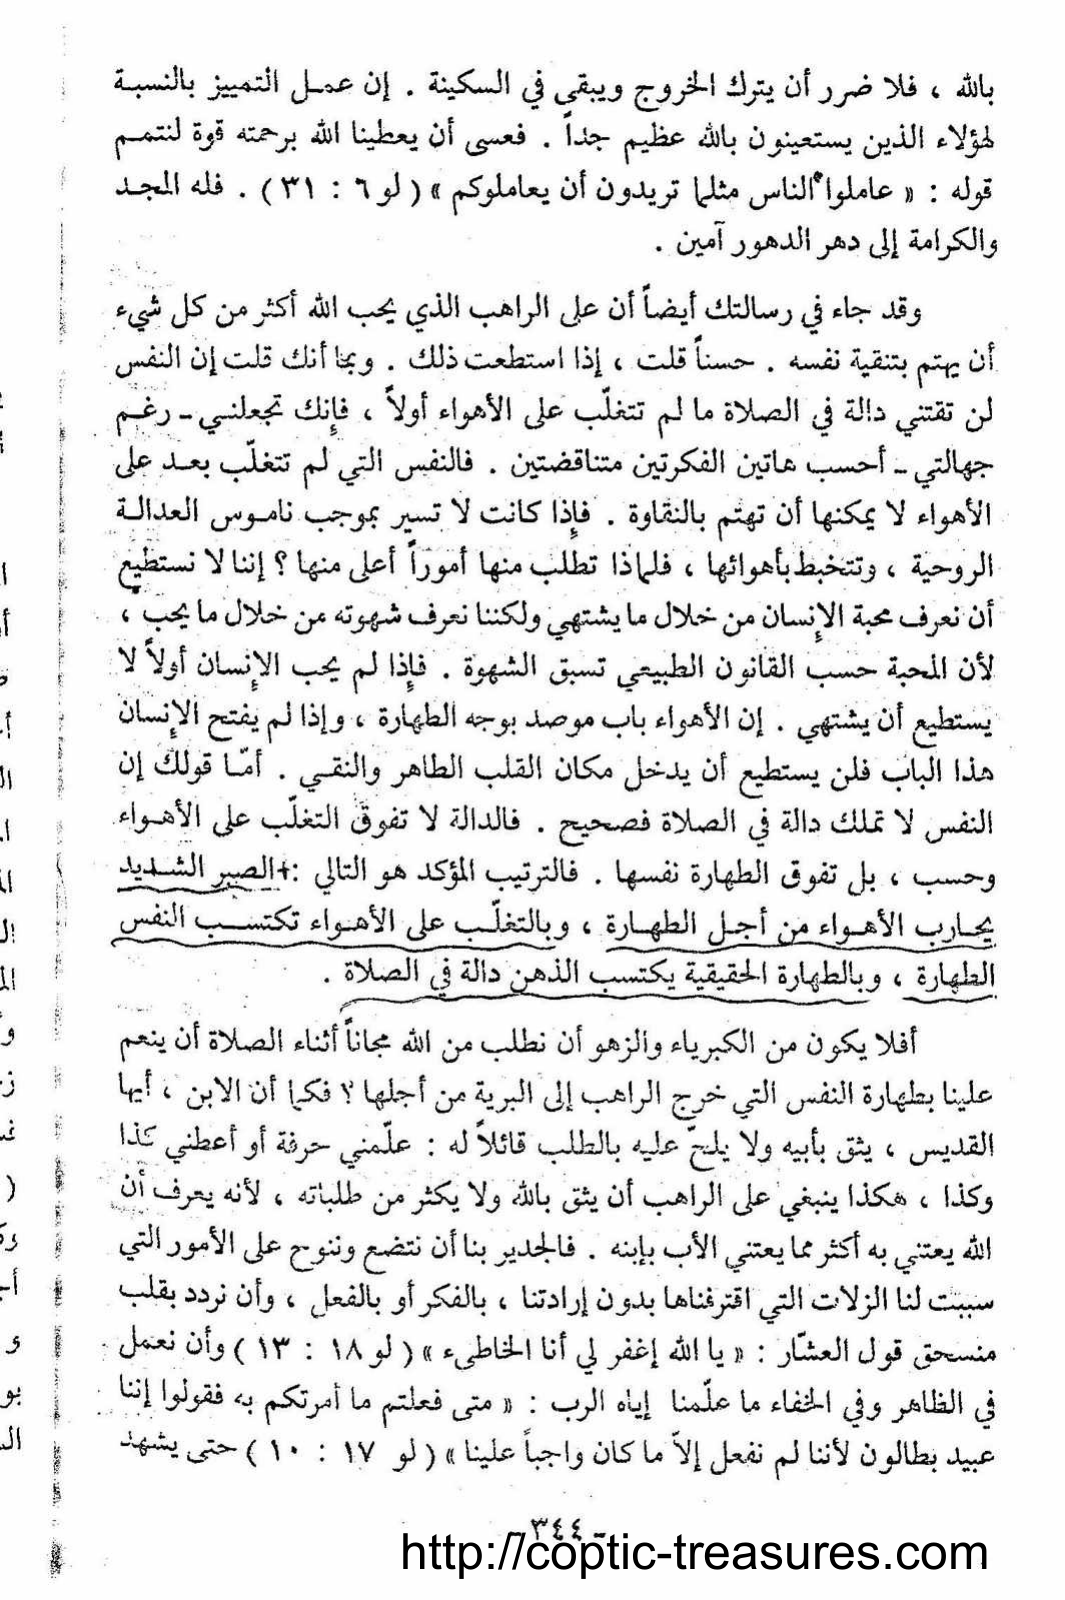 بالله ، فلا ضرر أن يترك الخروج ويبقى في السكينة . إن عمل التمييز بالنسبة
لهؤلاء الذين يستعينون بالله عظيم جداً . فعسى أن يعطينا الله برحمته قوة لنتمم
قوله : « عاملوا الناس مثلما تريدون أن يعاملوكم » ( لو ٦ : ٣١ ) . فله المجد
والكرامة إلى دهر الدهور آمين .
وقد جاء في رسالتك أيضاً أن على الراهب الذي يحب الله أكثر من كل شيء
أن يهتم بتنقية نفسه . حسناً قلت ، إذا استطعت ذلك . وبما أنك قلت إن النفس
لن تقتني دالة في الصلاة ما لم تتغلّب على الأهواء أولاً ، فإنك تجعلني - رغم
جهالتي - أحسب هاتين الفكرتين متناقضتين . فالنفس التي لم تتغلب بعد على
الأهواء لا يمكنها أن تهتم بالنقاوة . فإذا كانت لا تسير بموجب ناموس العدالة
الروحية ، وتتخبط بأهوائها ، فلماذا تطلب منها أموراً أعلى منها ؟ إننا لا نستطيع
أن نعرف محبة الإنسان من خلال ما يشتهي ولكننا نعرف شهوته من خلال ما يحب ،
لأن المحبة حسب القانون الطبيعي تسبق الشهوة . فإذا لم يحب الإنسان أولاً لا
يستطيع أن يشتهي . إن الأهواء باب موصد بوجه الطهارة ، وإذا لم يفتح الإنسان
هذا الباب فلن يستطيع أن يدخل مكان القلب الطاهر والنقي . أمّا قولك إن
النفس لا تملك دالة في الصلاة فصحيح . فالدالة لا تفوق التغلّب على الأهواء
وحسب ، بل تفوق الطهارة نفسها . فالترتيب المؤكد هو التالي :+الصبر الشديد
يحارب الأهواء من أجل الطهارة ، وبالتغلّب على الأهواء تكتسب النفس
الطهارة ، وبالطهارة الحقيقية يكتسب الذهن دالة في الصلاة .
أفلا يكون من الكبرياء والزهو أن نطلب من الله مجاناً أثناء الصلاة أن ينعم
علينا بطهارة النفس التي خرج الراهب إلى البرية من أجلها ؟ فكما أن الابن ، أيها
القديس ، يثق بأبيه ولا يلحّ عليه بالطلب قائلاً له : علّمني حرفة أو أعطني كذا
وكذا ، هكذا ينبغي على الراهب أن يثق بالله ولا يكثر من طلباته ، لأنه يعرف أن
الله يعتني به أكثر مما يعتني الأب بإبنه . فالجدير بنا أن نتضع وننوح على الأمور التي
سببت لنا الزلات التي اقترفناها بدون إرادتنا ، بالفكر أو بالفعل ، وأن نردد بقلب
منسحق قول العشّار : « يا الله إغفر لي أنا الخاطىء » ( لو ١٨ : ١٣ ) وأن نعمل
في الظاهر وفي الخفاء ما علّمنا إياه الرب : « متى فعلتم ما أمرتكم به فقولوا إننا
عبيد بطالون لأننا لم نفعل إلاّ ما كان واجباً علينا » ( لو ١٧ : ١٠ ) حتى يشهد
- ٣٤٤ -
http://coptic-treasures.com